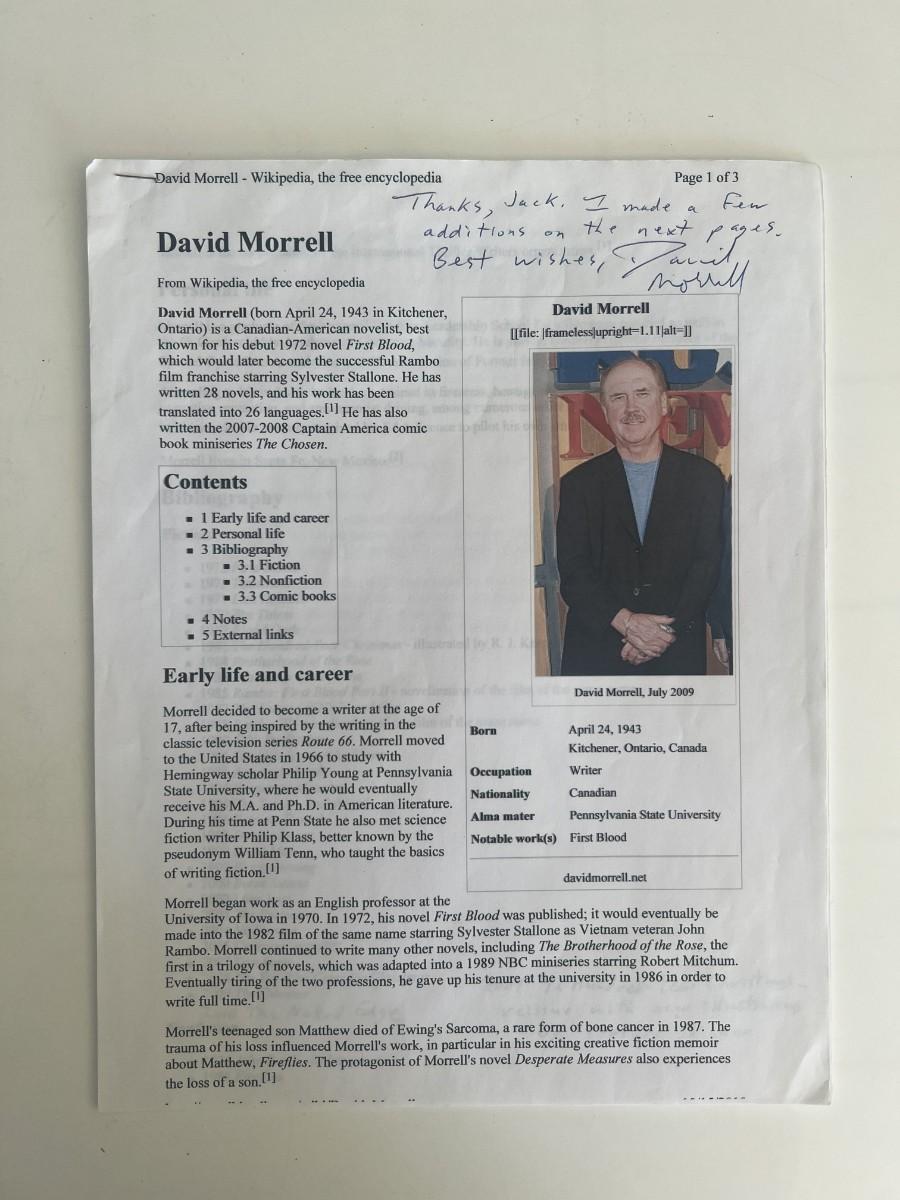 David Morrell - Wikipedia, the free encyclopedia
Page 1 of 3
Thanks, Jack. I made a few
additions on the next pages.
Best wishes, David
Morrell
David Morrell
From Wikipedia, the free encyclopedia
David Morrell (born April 24, 1943 in Kitchener,
Ontario) is a Canadian-American novelist, best
known for his debut 1972 novel First Blood,
which would later become the successful Rambo
film franchise starring Sylvester Stallone. He has
written 28 novels, and his work has been
translated into 26 languages.[1] He has also
written the 2007-2008 Captain America comic
book miniseries The Chosen.
Contents
1 Early life and career
2 Personal life
3 Bibliography
3.1 Fiction
3.2 Nonfiction
3.3 Comic books
4 Notes
5 External links
David Morrell
[[file: |frameless|upright=1.11|alt=]]
NEW
David Morrell, July 2009
Born April 24, 1943
Kitchener, Ontario, Canada
Occupation Writer
Nationality Canadian
Alma mater Pennsylvania State University
Notable work(s) First Blood
davidmorrell.net
Early life and career
Morrell decided to become a writer at the age of
17, after being inspired by the writing in the
classic television series Route 66. Morrell moved
to the United States in 1966 to study with
Hemingway scholar Philip Young at Pennsylvania
State University, where he would eventually
receive his M.A. and Ph.D. in American literature.
During his time at Penn State he also met science
fiction writer Philip Klass, better known by the
pseudonym William Tenn, who taught the basics
of writing fiction.[1]
Morrell began work as an English professor at the
University of Iowa in 1970. In 1972, his novel First Blood was published; it would eventually be
made into the 1982 film of the same name starring Sylvester Stallone as Vietnam veteran John
Rambo. Morrell continued to write many other novels, including The Brotherhood of the Rose, the
first in a trilogy of novels, which was adapted into a 1989 NBC miniseries starring Robert Mitchum.
Eventually tiring of the two professions, he gave up his tenure at the university in 1986 in order to
write full time.[1]
Morrell's teenaged son Matthew died of Ewing's Sarcoma, a rare form of bone cancer in 1987. The
trauma of his loss influenced Morrell's work, in particular in his exciting creative fiction memoir
about Matthew, Fireflies. The protagonist of Morrell's novel Desperate Measures also experiences
the loss of a son.[1]